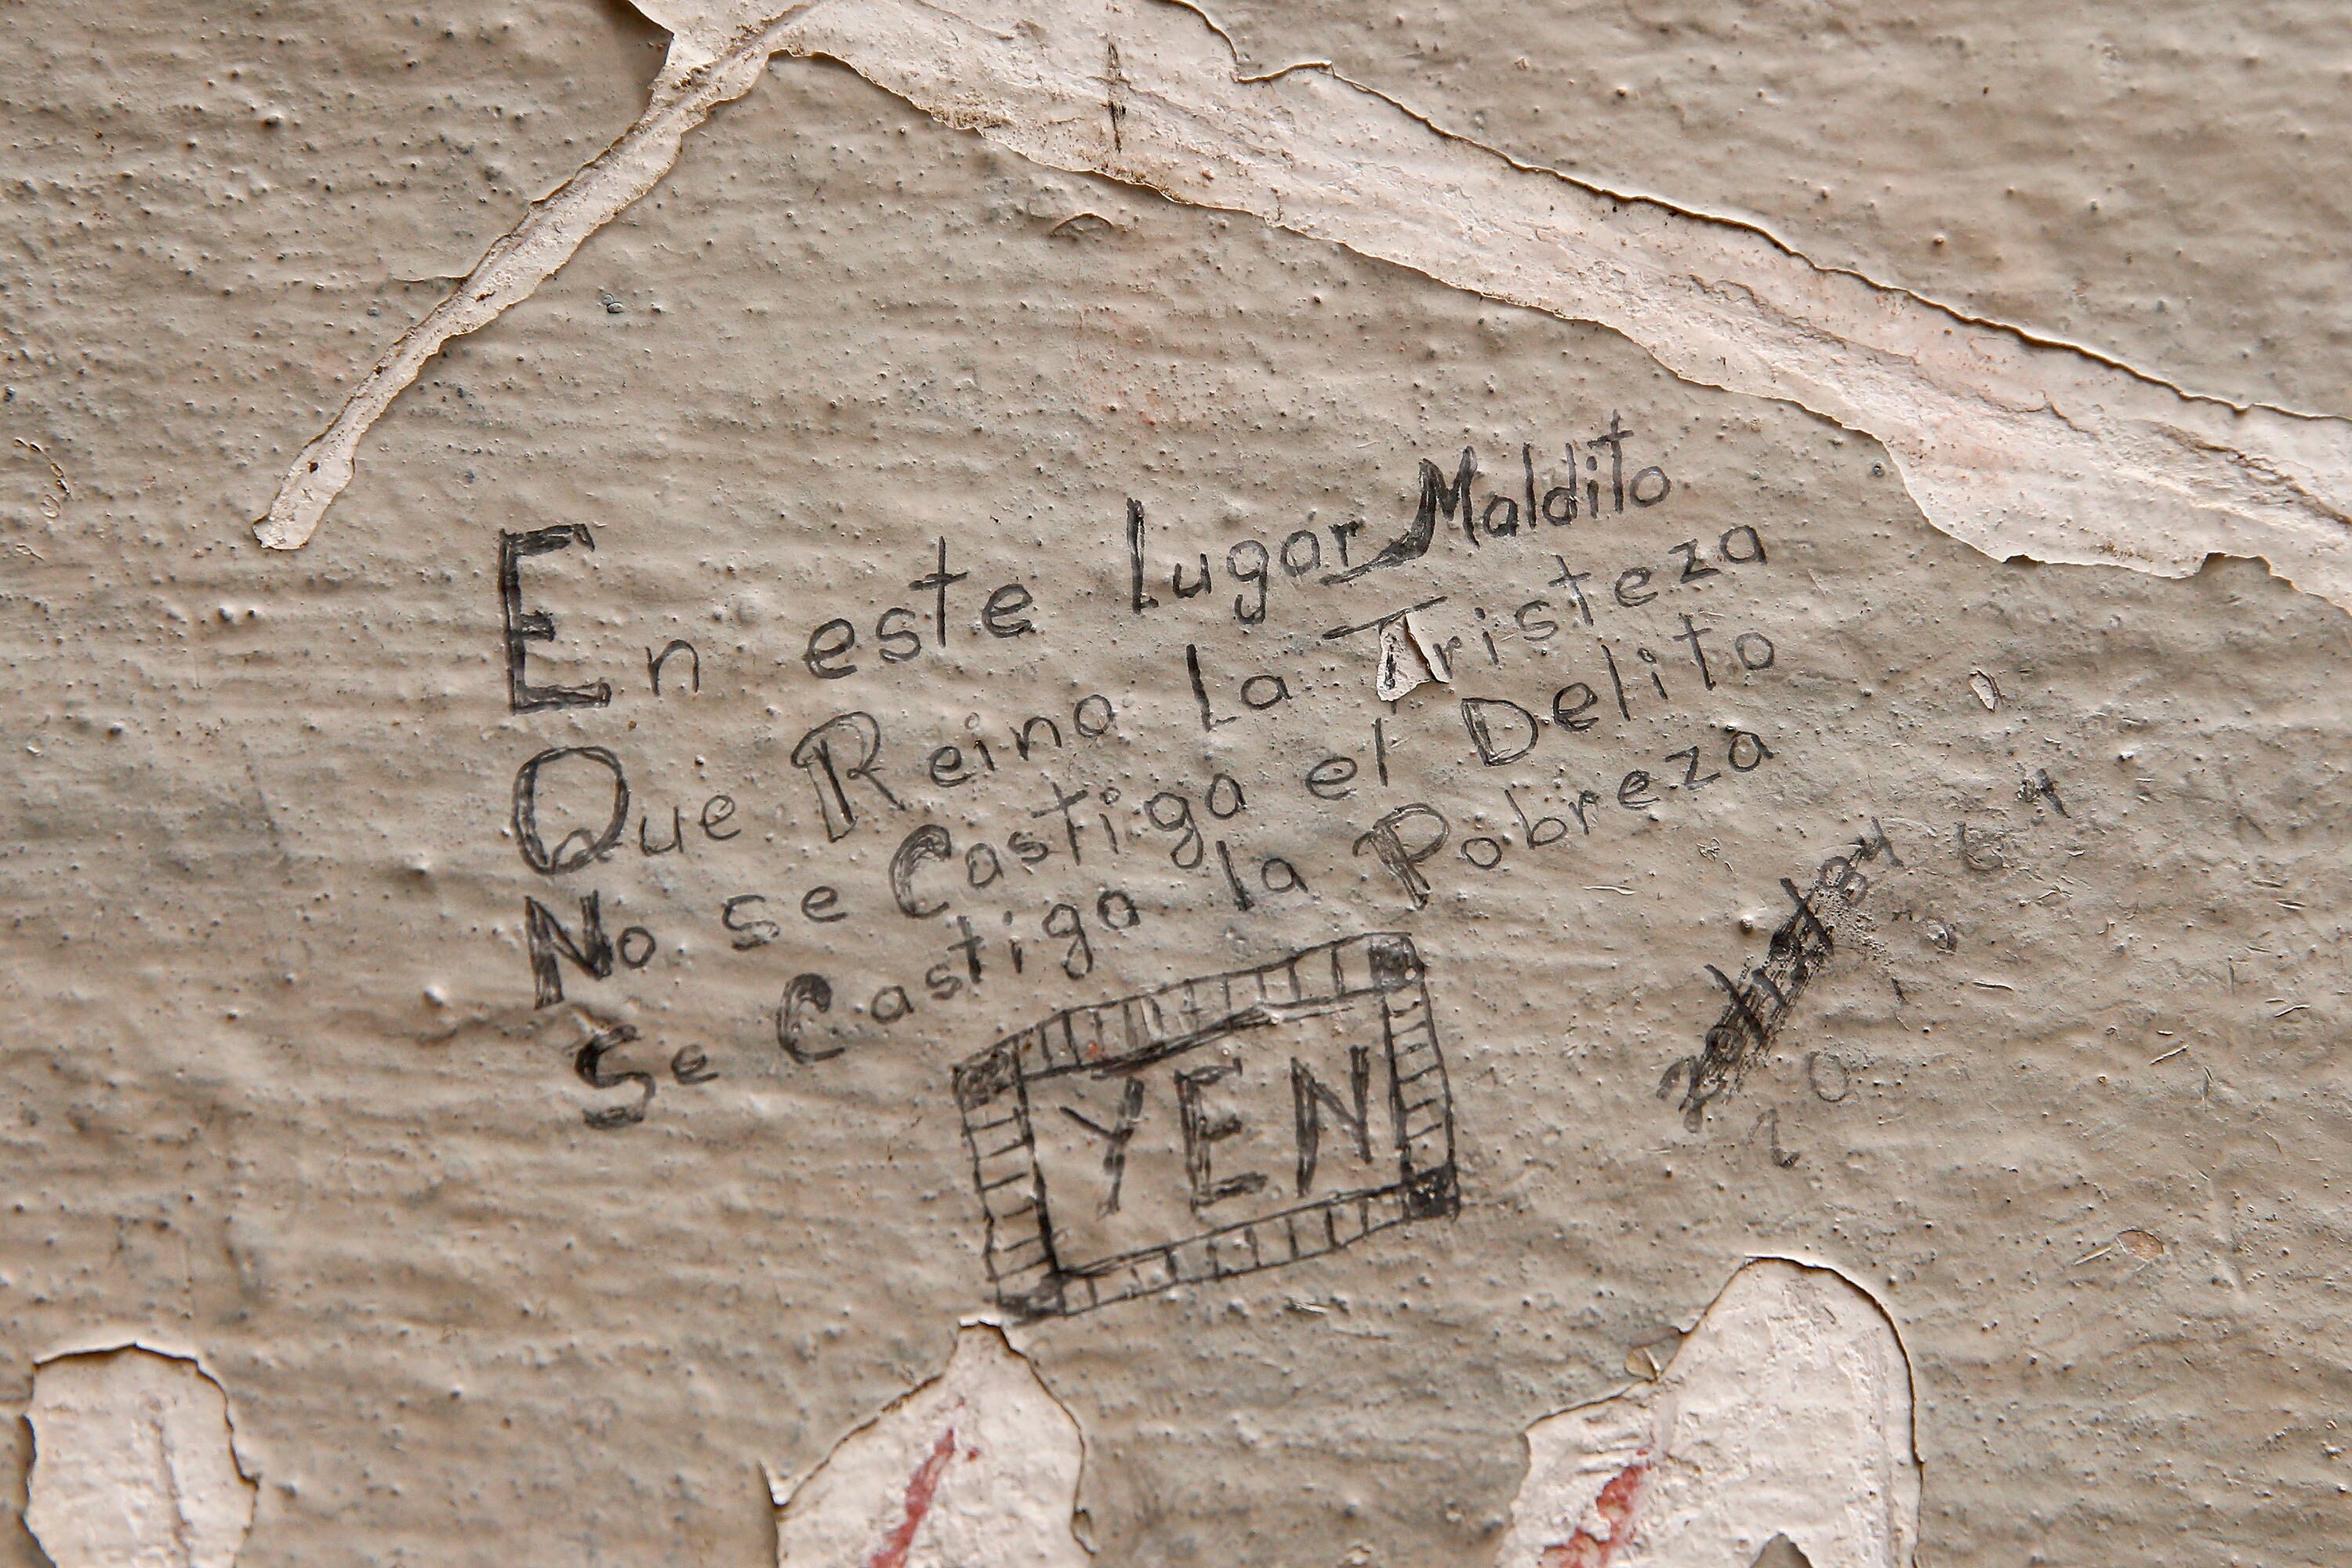 En este lugar Maldito
Que Reina La Tristeza
No se Castiga el Delito
Se Castiga la Pobreza
YEN